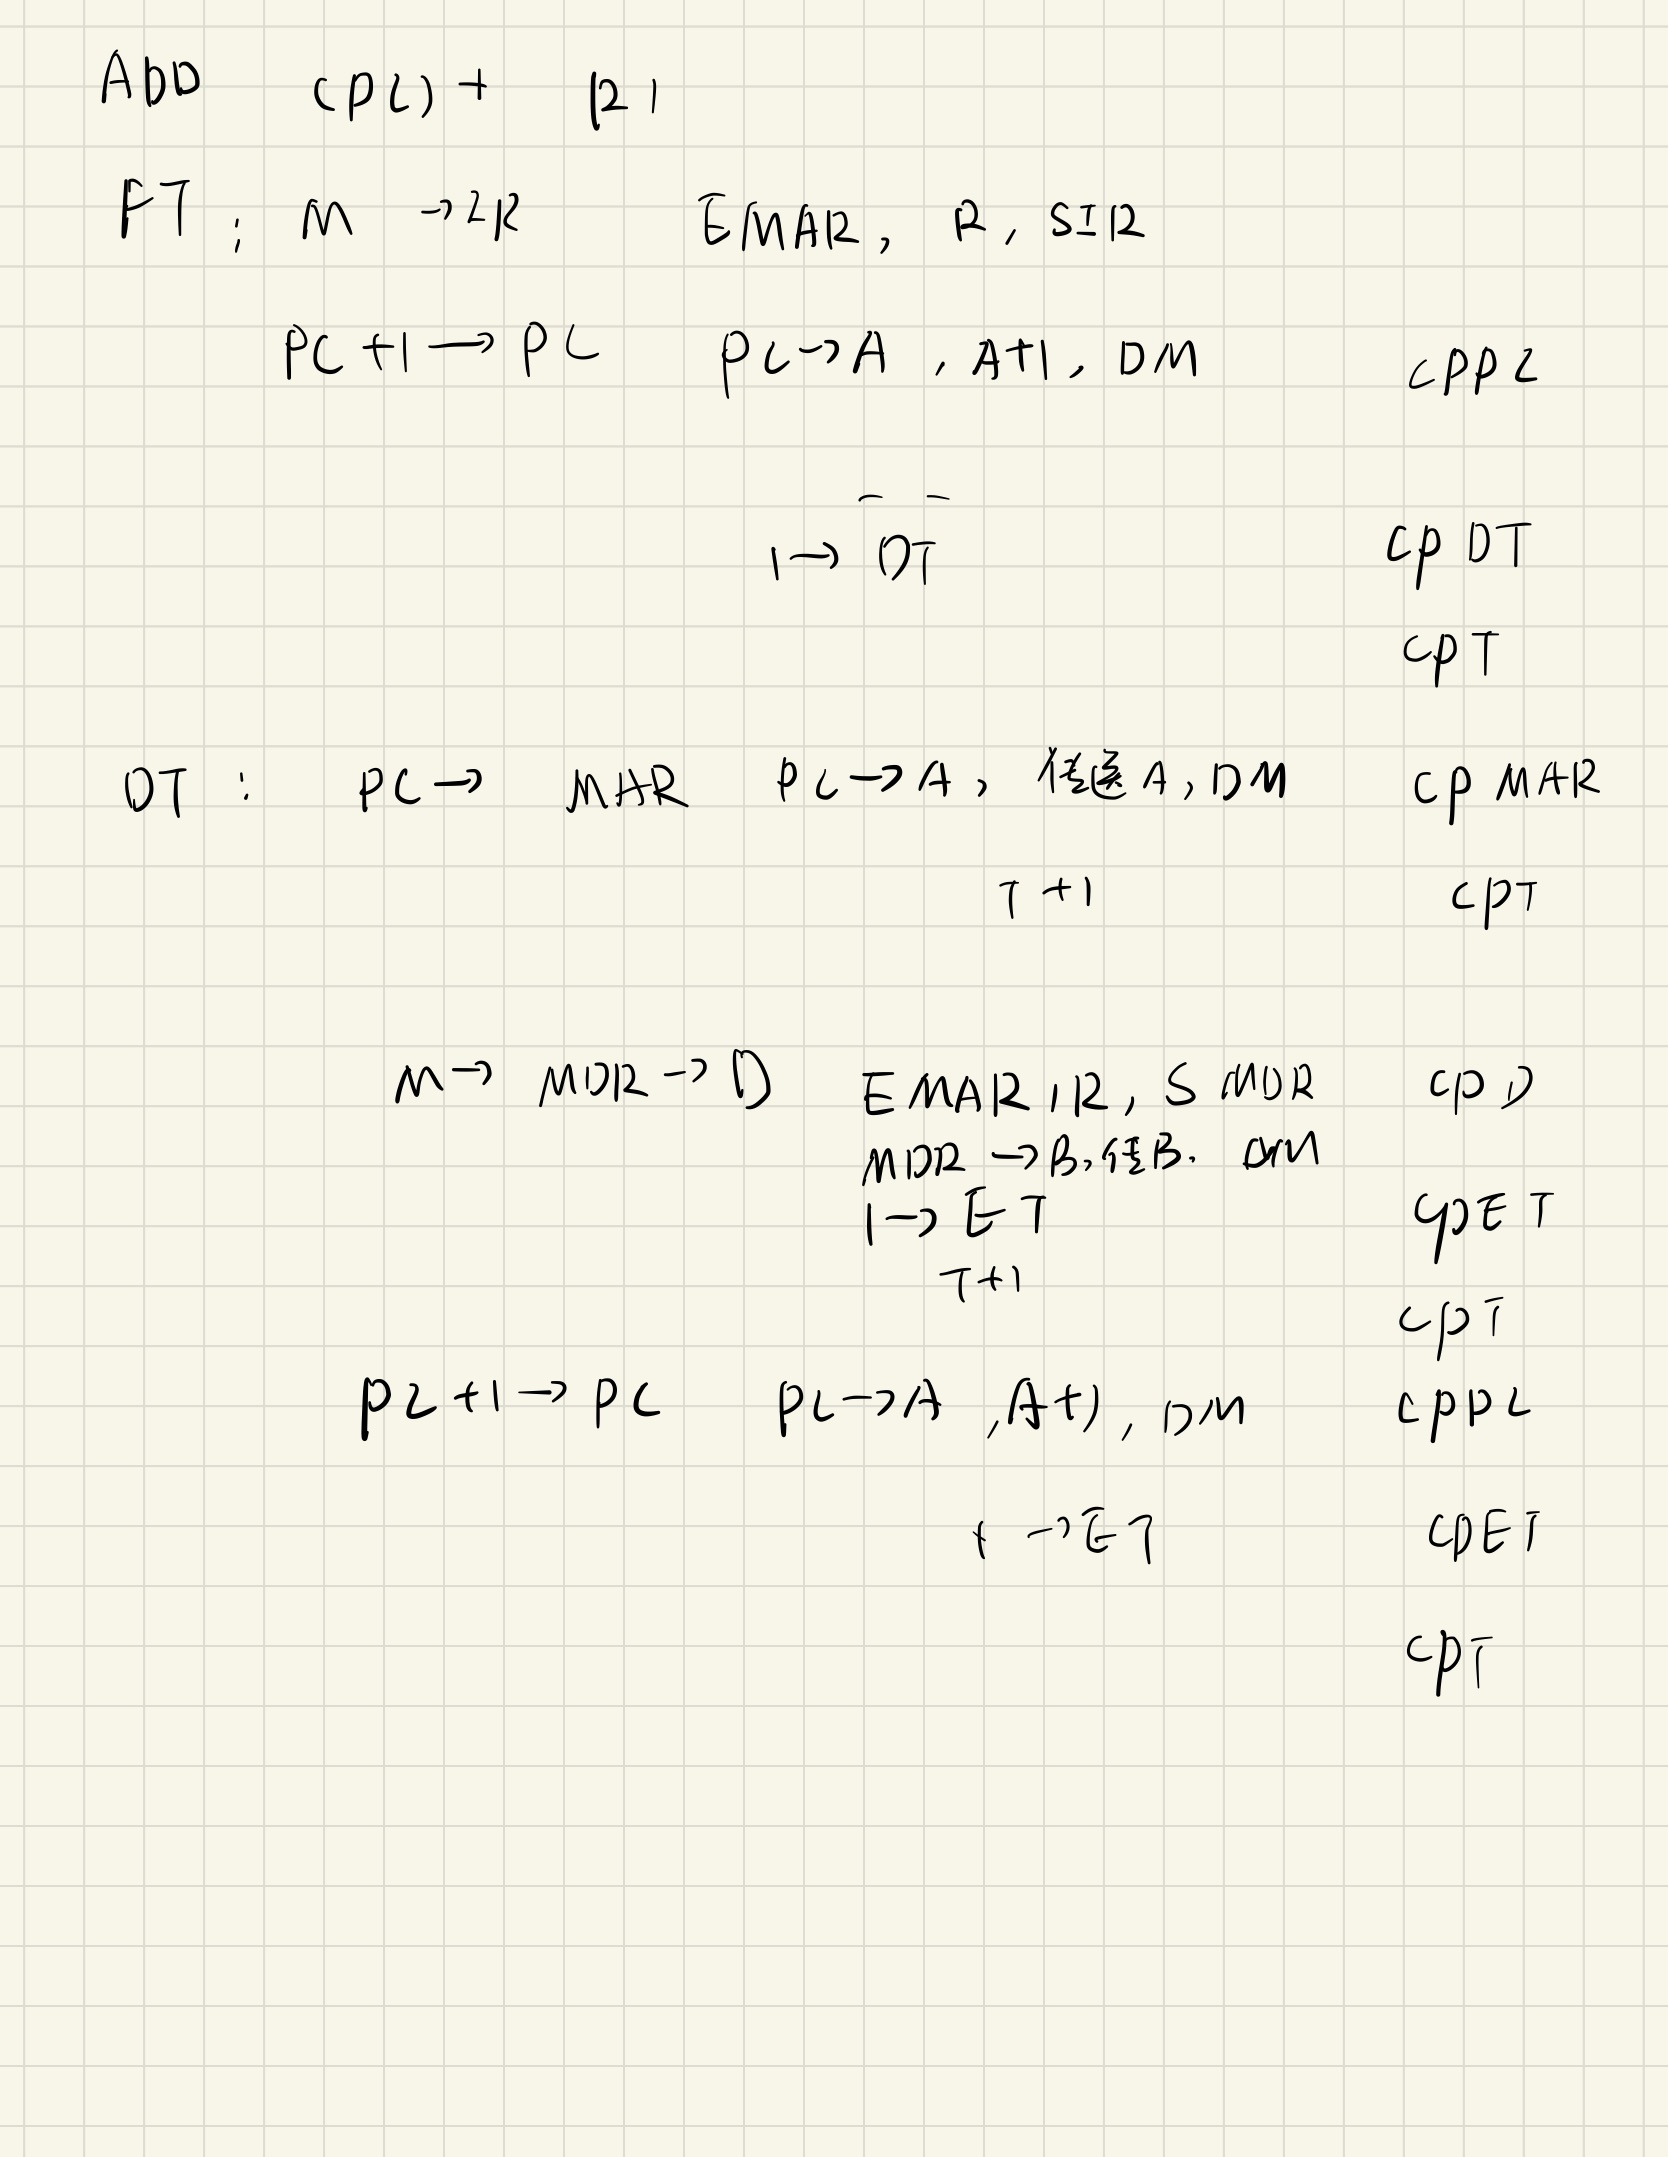 ADD (PC)+ R1
FT: M → IR EMAR, R, SIR
PC+1 → PC PC→A, A+1, DM CPPC
1→ DT CPDT
CPT
DT: PC→ MAR PC→A, 传送A, DM CPMAR
T+1 CPT
M→ MDR→D EMAR, R, SMDR CPD
MDR→B, 传B. DM
1→ ET CPET
T+1
CPT
PC+1→PC PC→A, A+1, DM CPPC
1→ET CPET
CPT